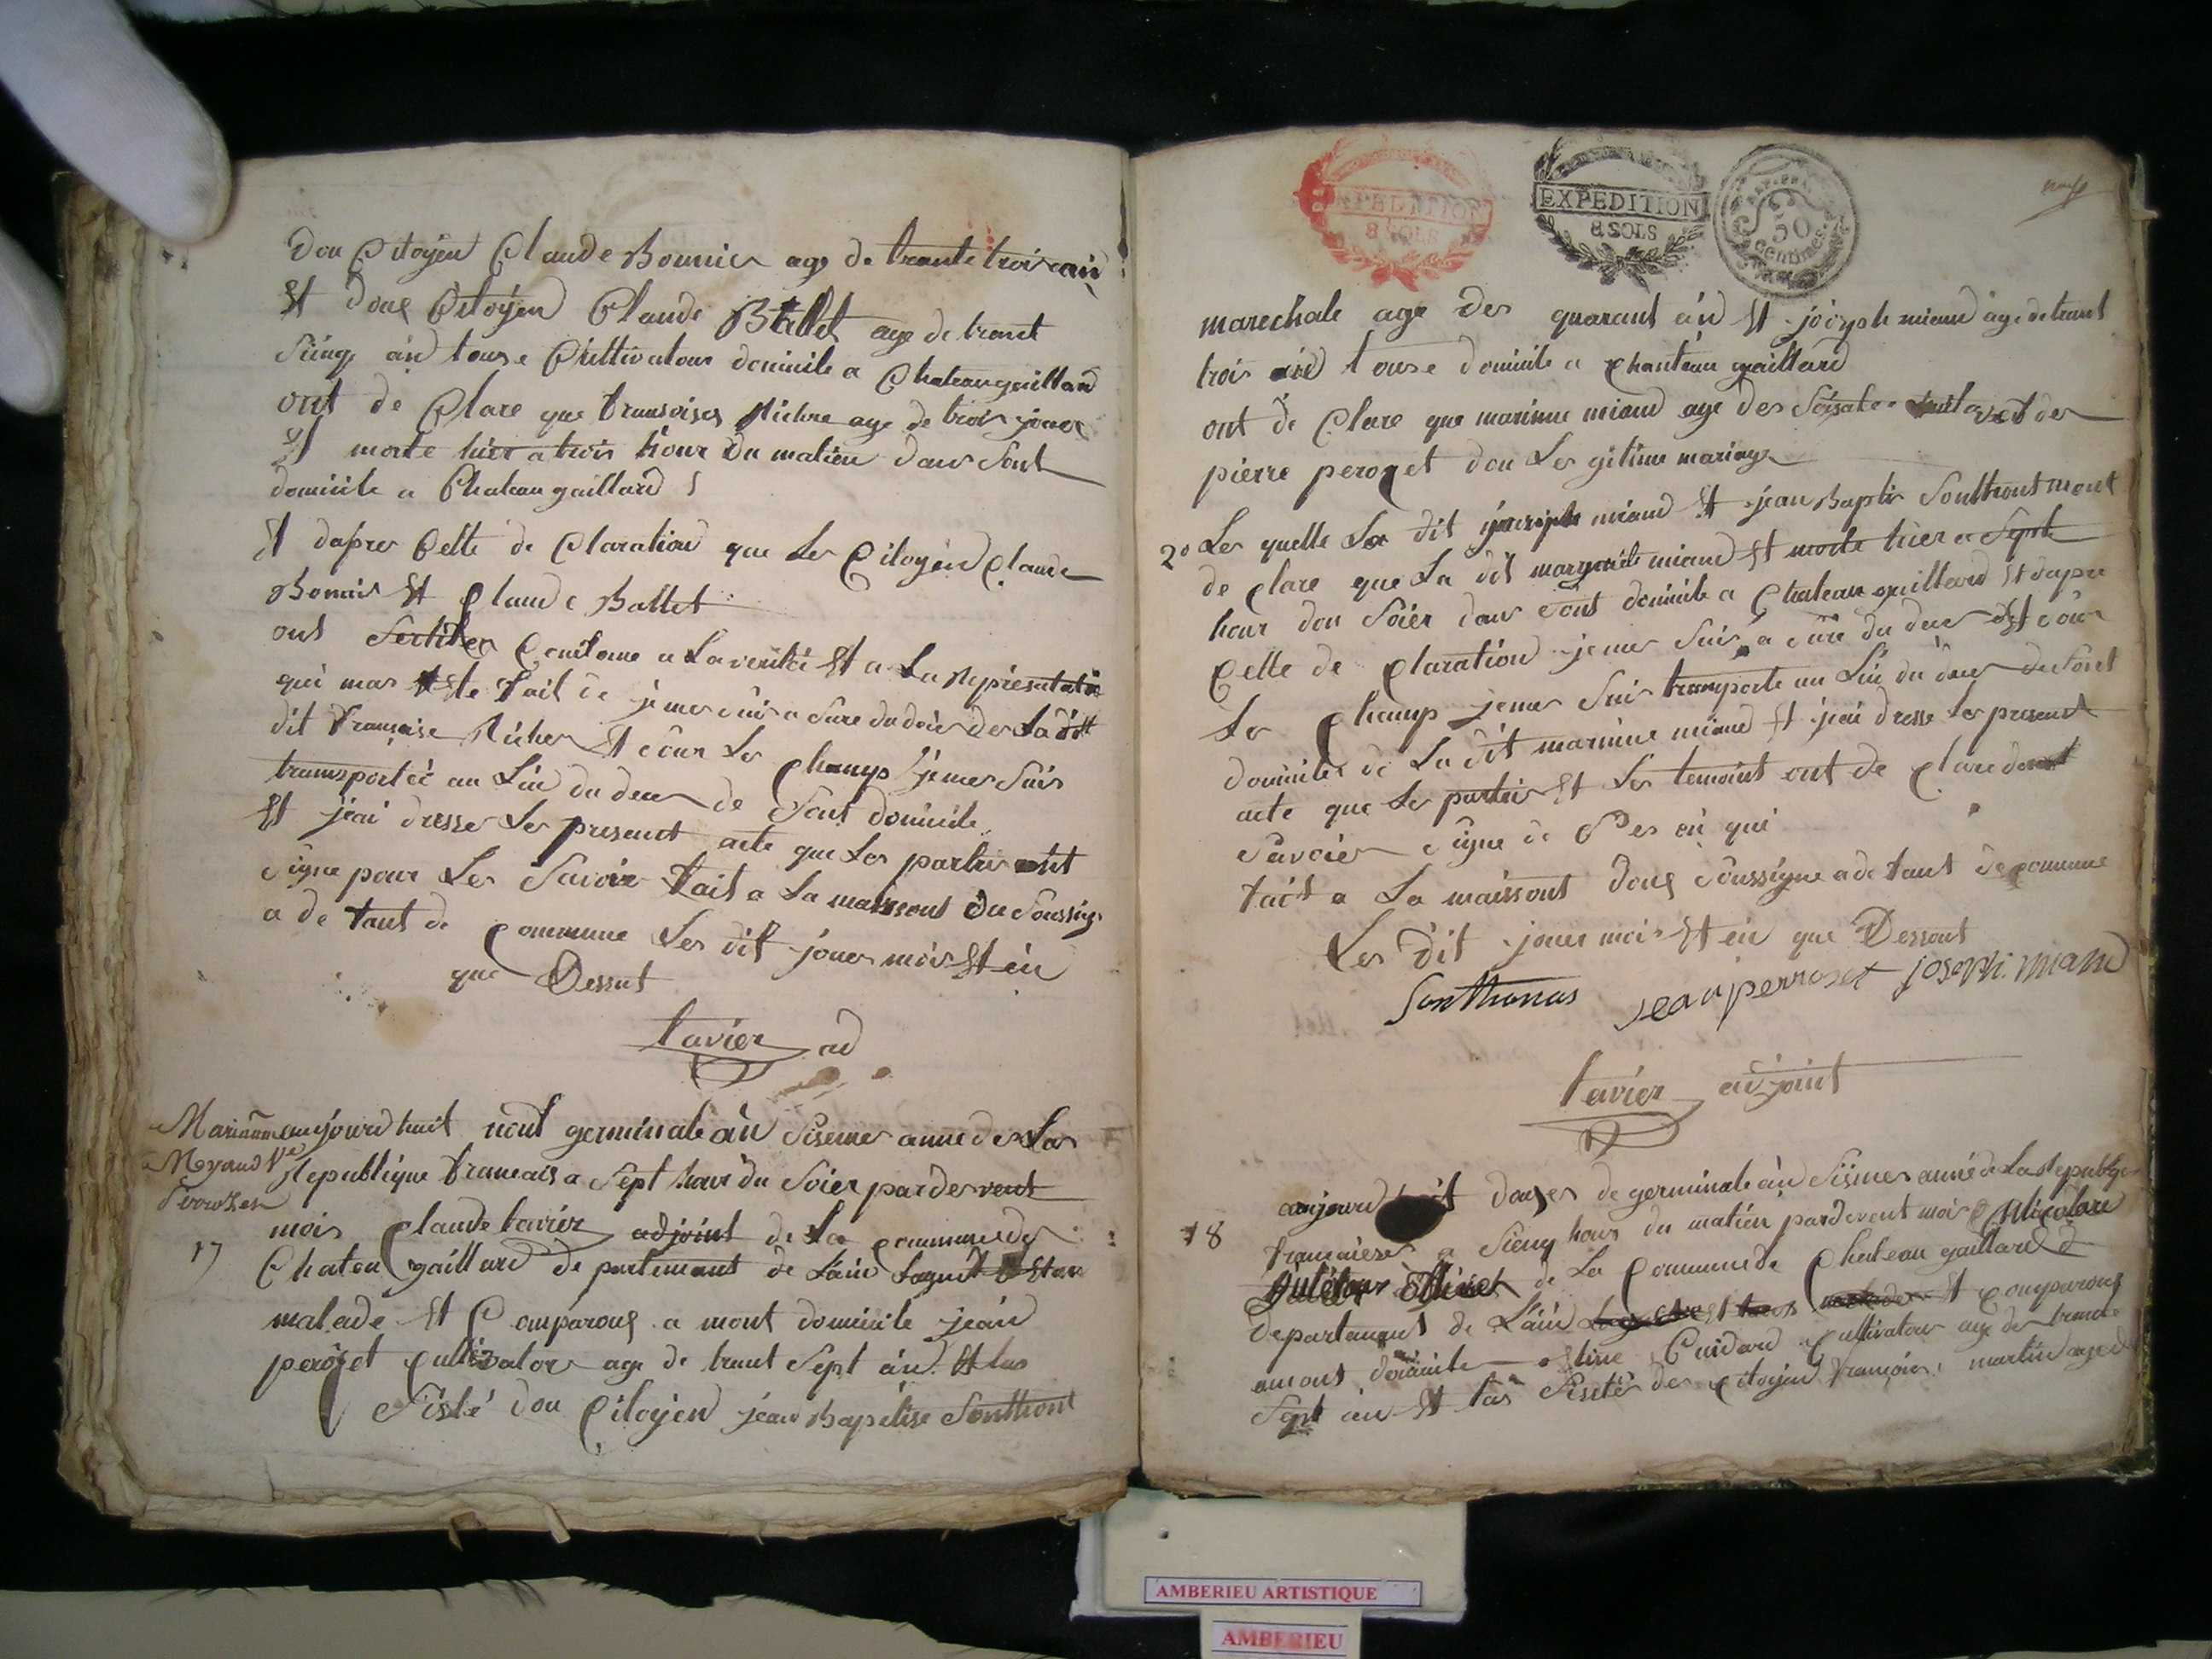 Dou Citoyen Claude Bonnier age de trante trois an
Et douc Citoyen Claude Ballet age de trant
Sinq an touse Cultivatour domicile a Chateaugaillard
ont de Clare que fransoises Richre age de trois jouer
Et morte hier a trois hour Du matien dans Sont
domicile a Chateau gaillard
Et dapres Cette de Claration que Les Citoyen Claude
Bonnir Et Claude Ballet
ont Sertifier Comfome a La verité Et a La Représentatio
qui mas Este fait de je mes suis a Sure du deces de La dit
dit françoise Richer Et Sour Les Champ jemes Suis
transportéé au Lieu du deces de Sont domicile
Et jéai dresser Les presenct acte que Les parties ont
Signe pour Les Savoir fait a La maissont Du Soussigne
a de tant de Commune Les dit jouer mois Et èn
que Dessut
tavier ad
Mariamne aujourd huit nout germinale àn Sisemes anne des Las
Meyand Ve Republique francais a Sept hour du Soier pardevent
Perouzet
mois Claude tavier adjoint de La Commune de
17
Chateau gaillard de partement de Lain
malade Et Comparoug a mont domicile jean
perozet Cultivatore age de trant Sept àn Et las
Sisté dou Citoyen jean Baptise Sonthont
EXPEDITION
8 SOLS
EXPEDITION
8 SOLS
50
Centimes
marechale age Des quarant àn Et joseph miand age de trant
trois an touse domicile a Chanteau gaillard
ont de Clare que marinne miand age des Soisate
pierre perozet dou Les gitime mariage
20 Les quelle La dit joseph miand Et jean Baptis Sonthont mont
de Clare que La dit margarite miand Et morte hier a Sept
hour dou Soier dans Sont domicile a Chateau gaillard Et dapre
Cette de Claration jemes Suis a Sure du deces Et Sour
Les Champ jemes Suis transporte au Lieu du deces du Sont
domicile de La dit marinne miand Et jeai dresse Les presenct
acte que Les parties Et Les temoint ont de Clare
Savoier Signe de Ses en qui
fait a La maissont douc Soussigne a de tant de Comune
Les Dit jouer mois Et èn que Dessout
Sonthonas jean perrozet joseph miand
tavier adjoint
aujourd huit douses de germinale àn Sisimes anné de La Republiqe
18
françaises a Sienq hour du matien pardevent mois Nicolare
de La Commune de Chateau gaillard d
Departement de Lain Et Comparouq
amont domicile Etine Cuidard Cultivatour age de trante
Sept àn Et las Sisités des Citoyen françois martin age de